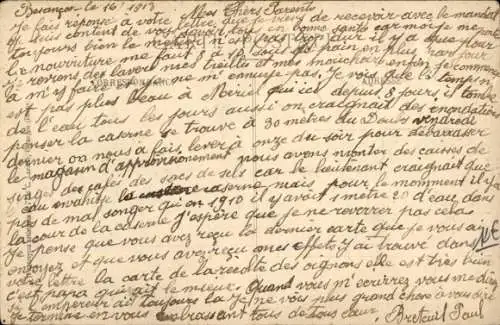 Besançon le 16 1913
Mes Chers Parents
Je fais réponse à votre lettre que je viens de recevoir avec le mandat
je suis content de vous savoir tous en bonne santé car moi je me porte
toujours bien le métier n'est pas trop dur il y a que pour
la nourriture me faut du pain en plus
revons des mes treillis et mes mouchoirs enfin je commence
à m'y faire je ne m'ennuye pas. Je vois que le temps n'
est pas plus beau à qu'ici depuis 8 jours il tombe
de l'eau tous les jours aussi on craignait des inondations
penser la caserne se trouve à 30 mètres du Doubs vendredi
dernier on nous a fait lever à onze du soir pour débarasser
le magasin d'approvisionnement nous avons monter des caisses de
singes des cafés des sacs de sels car le lieutenant craignait que
l'eau envahisse la caserne mais pour le momment il y a
pas de mal songer qu'en 1910 il y avait 1 mètre 20 d'eau dans
la cour de la caserne J'espère que je ne reverrez pas cela
Je pense que vous avez reçu la dernier carte que je vous ai
envoyez et que vous avez reçu mes effets, j'ai trouvé dans
votre lettre la carte de la récolte des oignons elle est très bien
c'est papa qui est le mieux. Quand vous m'écrirez vous me direz
si toujours là Je ne vois plus grand chose à vous dire
Je termine en vous embrassant tous de tous cœur
Breteuil Paul